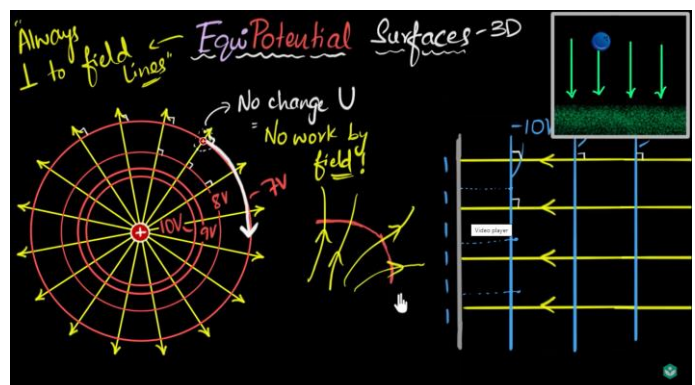 "Always
⊥ to field
lines"
EquiPotential Surfaces - 3D
No change U
= No work by
field!
10V
9V
8V
7V
+
-10V
Video player